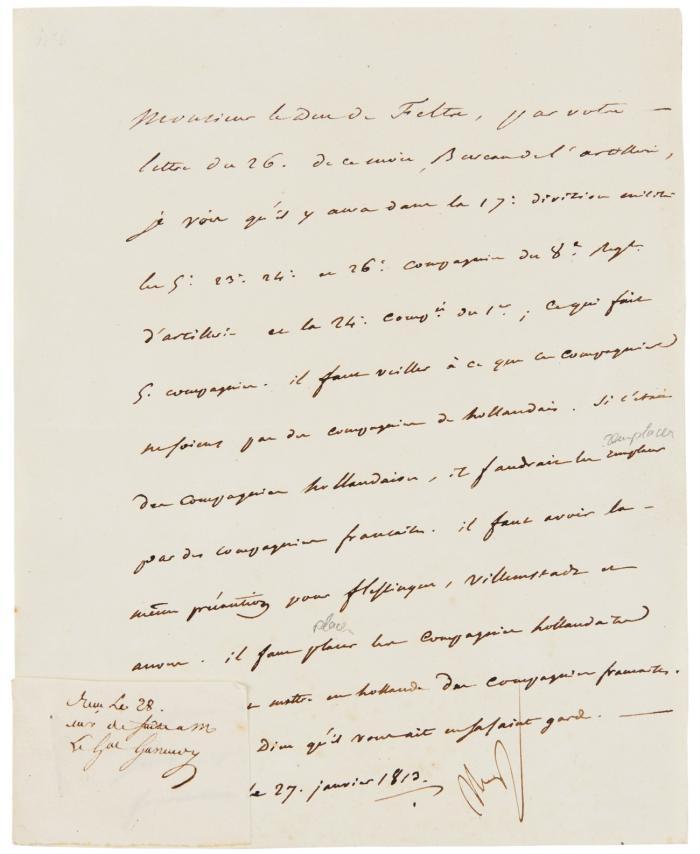 Monsieur le Duc de Feltre, par votre
lettre du 26. de ce mois, Bureau de l'artillerie,
je vois qu'il y aura dans la 17e. division militre
les 5e. 23e. 24e. et 26e. compagnies du 8e. Regt.
d'artillerie et la 24e. compie du 1er; ce qui fait
5. compagnies. il faut veiller à ce que ces compagnies
ne soient pas des compagnies de hollandais. Si c'était
des compagnies hollandaises, il faudrait les remplacer
remplacer
par des compagnies françaises. il faut avoir la
même précaution pour flessingue, Villemstadt et
anvers. il faut placer les compagnies hollandaises
placer
mettre en hollande des compagnies françaises.
Dieu qu'il vous ait en sa sainte garde.
le 27. janvier 1813.
Nap
Le 28.
de suite a M
Le Gal